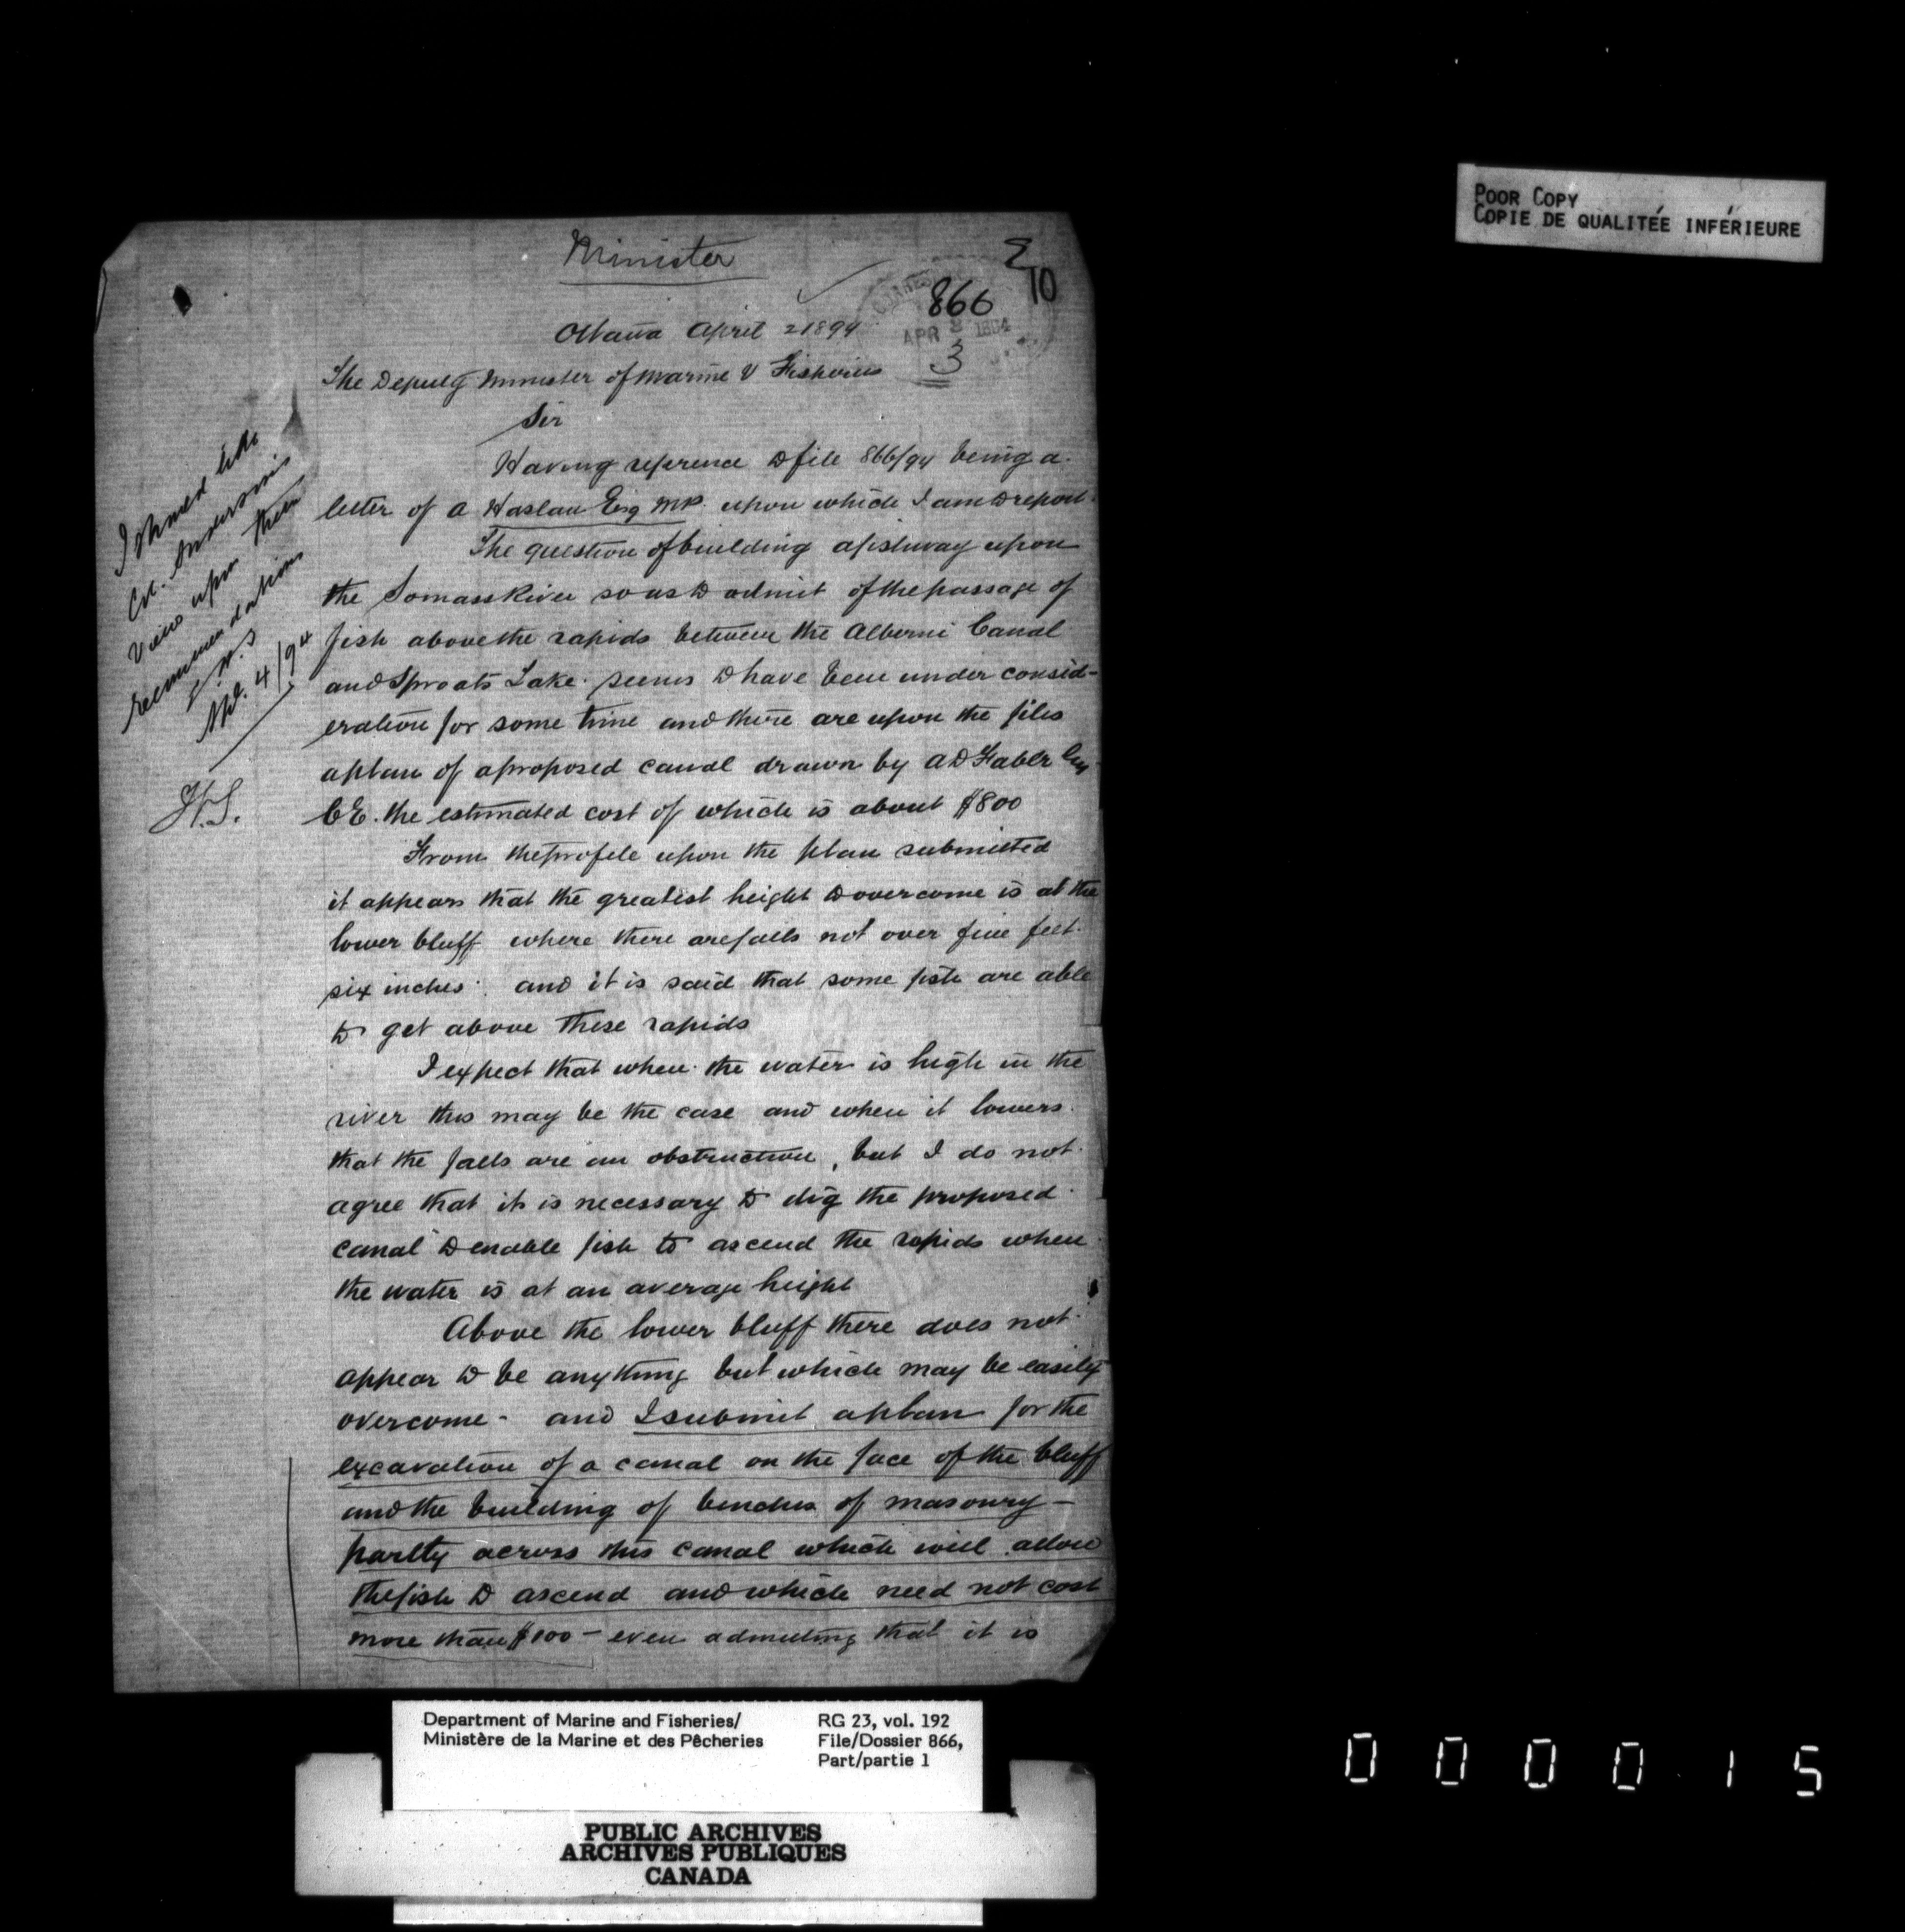 POOR COPY
COPIE DE QUALITÉE INFÉRIEURE
Minister
10
866
APR 1894
3
Ottawa April 2 1894
The Deputy Minister of Marine & Fisheries
Sir
Having reference to file 866/94 being a
letter of A Haslam Esq MP. upon which I am to report.
The question of building a fishway upon
the Somass River so as to admit of the passage of
fish above the rapids between the Alberni Canal
and Sproats Lake seems to have been under consid-
eration for some time and there are upon the files
a plan of a proposed canal drawn by A D Faber
CE. the estimated cost of which is about $800
From the profile upon the plan submitted
it appears that the greatest height to overcome is at the
lower bluff where there are falls not over five feet
six inches. and it is said that some fish are able
to get above these rapids
I expect that when the water is high in the
river this may be the case and when it lowers
that the falls are an obstruction, but I do not
agree that it is necessary to dig the proposed
canal to enable fish to ascend the rapids when
the water is at an average height
Above the lower bluff there does not
appear to be anything but which may be easily
overcome - and I submit a plan for the
excavation of a canal on the face of the bluff
and the building of benches of masonry -
partly across this canal which will allow
the fish to ascend and which need not cost
more than $100 - even admitting that it is
I should like
views upon these
recommendations
Apl. 4/94
H.S.
Department of Marine and Fisheries/
Ministère de la Marine et des Pêcheries
RG 23, vol. 192
File/Dossier 866,
Part/partie 1
PUBLIC ARCHIVES
ARCHIVES PUBLIQUES
CANADA
0 0 0 0 1 5